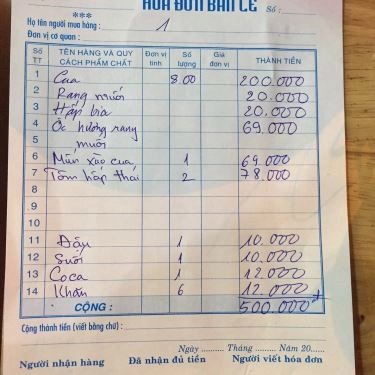 HÓA ĐƠN BÁN LẺ Số :
***
Họ tên người mua hàng : 1
Đơn vị cơ quan :
Số TT TÊN HÀNG VÀ QUY CÁCH PHẨM CHẤT Đơn vị tính Số lượng Giá đơn vị THÀNH TIỀN
1 Cua 8.00 200.000
2 Rang muối 20.000
3 Hấp bia 20.000
4 Ốc hương rang 69.000
5 muối
6 Mũn xào cua 1 69.000
7 Tôm hấp thái 2 78.000
8
9
10
11 Đậu 1 10.000
12 Suối 1 10.000
13 Coca 1 12.000
14 Khăn 6 12.000
CỘNG : 500.000
Cộng thành tiền (viết bằng chữ) :
Ngày Tháng Năm 20
Người nhận hàng Đã nhận đủ tiền Người viết hóa đơn